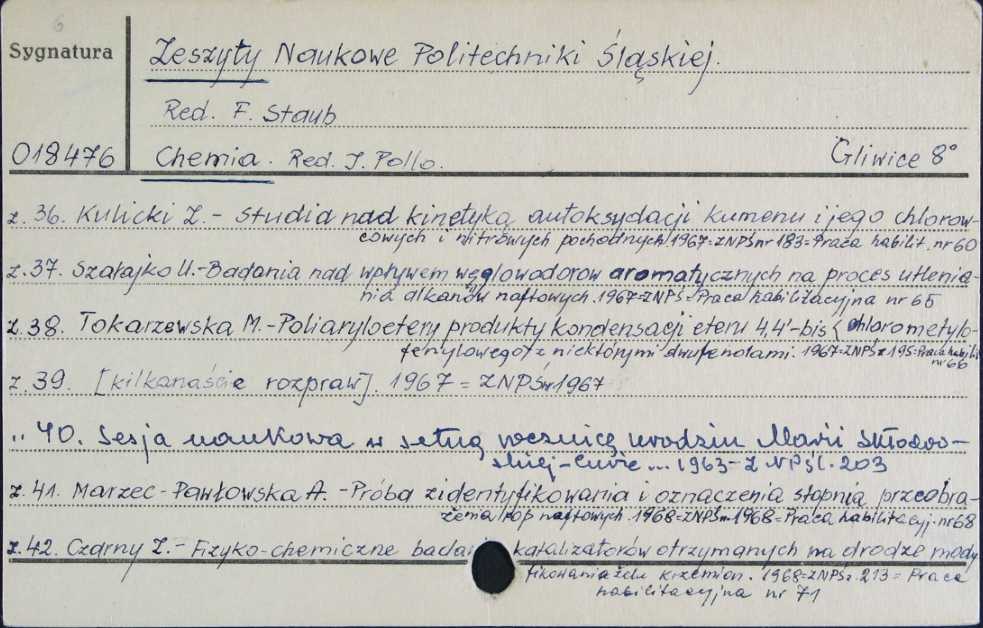 6
Sygnatura
Zeszyty Naukowe Politechniki Śląskiej.
Red. F. Staub
018476
Chemia. Red. J. Pollo.
Gliwice 8°
z. 36. Kulicki Z. - Studia nad kinetyką autoksydacji kumenu i jego chlorow-
cowych i nitrowych pochodnych. 1967=ZNPŚ nr 183=Praca habilit. nr 60
z. 37. Szałajko U.-Badania nad wpływem węglowodorow aromatycznych na proces utlenia-
nia alkanów naftowych. 1967=ZNPŚ=Praca habilitacyjna nr 65
z. 38. Tokarzewska M.-Poliaryloetery produkty kondensacji eteru 4,4'-bis ( chlorometylo-
fenylowego) z niektórymi dwufenolami. 1967=ZNPŚ z 195=Praca habilit
nr 66
z. 39. [kilkanaście rozpraw]. 1967 = ZNPŚ 1967
,, 40. Sesja naukowa w setną rocznicę urodzin Marii Skłodow-
skiej-Curie ... 1963-Z NPŚl. 203
z. 41. Marzec-Pawłowska A. -Próba zidentyfikowania i oznaczenia stopnia przeobra-
żenia rop naftowych. 1968=ZNPŚ 1968=Praca habilitacyj. nr 68
z. 42. Czarny Z.- Fizyko-chemiczne badania katalizatorów otrzymanych na drodze mody
fikowania żelu krzemion. 1968=ZNPŚ z. 213= Praca
habilitacyjna nr 71